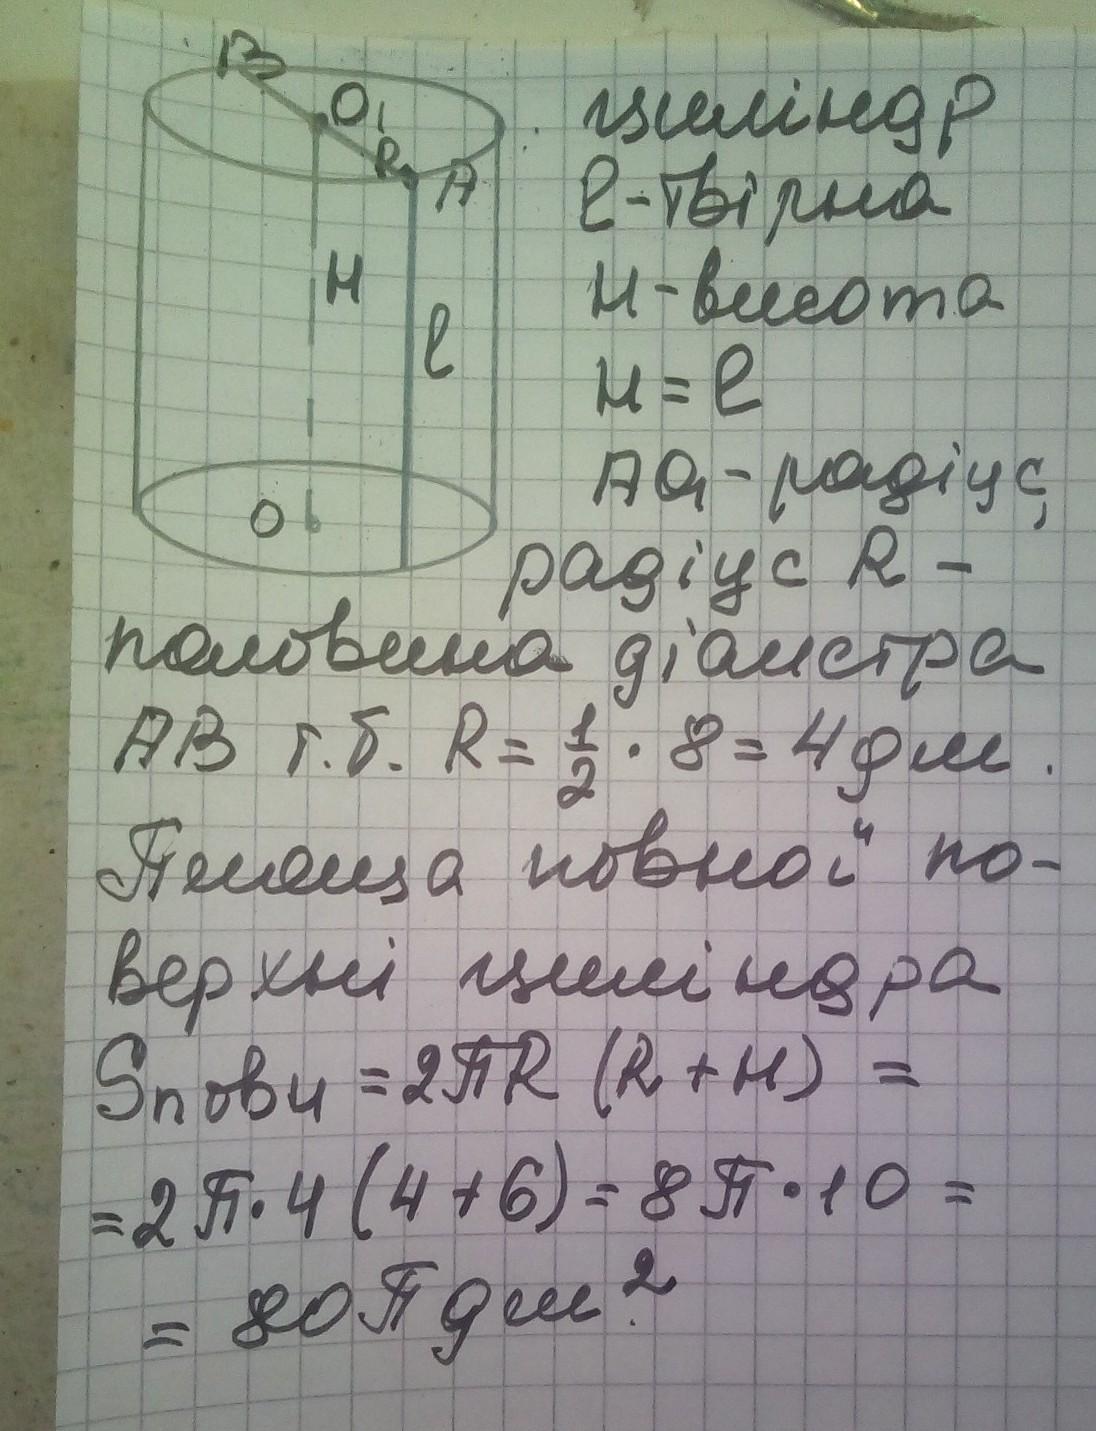 B
O₁
R
A
H
l
O
циліндр
l - твірна
H - висота
H = l
AO₁ - радіус,
радіус R -
половина діаметра
AB т.б. R = 1/2 · 8 = 4 дм.
Площа повної по-
верхні циліндра
Sповн = 2πR (R + H) =
= 2π · 4 (4 + 6) = 8π · 10 =
= 80π дм².